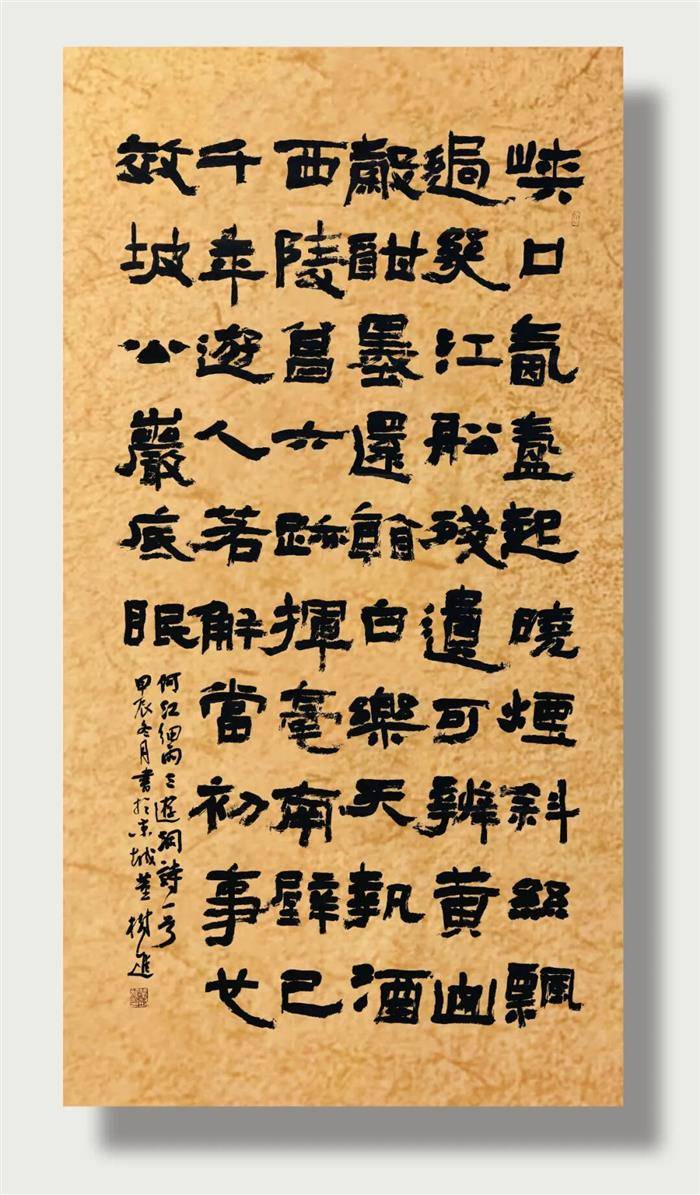 峽口氤氳起曉煙斜絲飄
過幾江船殘遺可辨黃
酣墨還餘白樂天執酒
西陵六跡揮毫南壁已
千年遊人若解當初事也
效坡公巖底眠
何紅細雨三遊洞詩一首
甲辰冬月書於京城董樹進